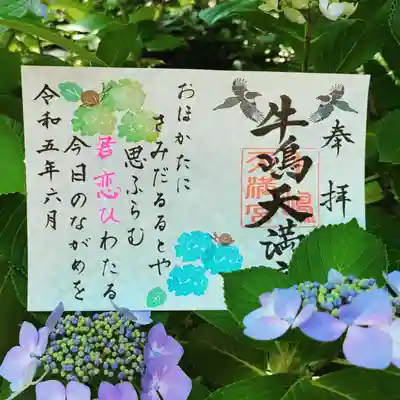 奉拝
牛嶋天満宮
おほかたに
さみだるるとや
思ふらむ
君恋ひわたる
今日のながめを
令和五年六月